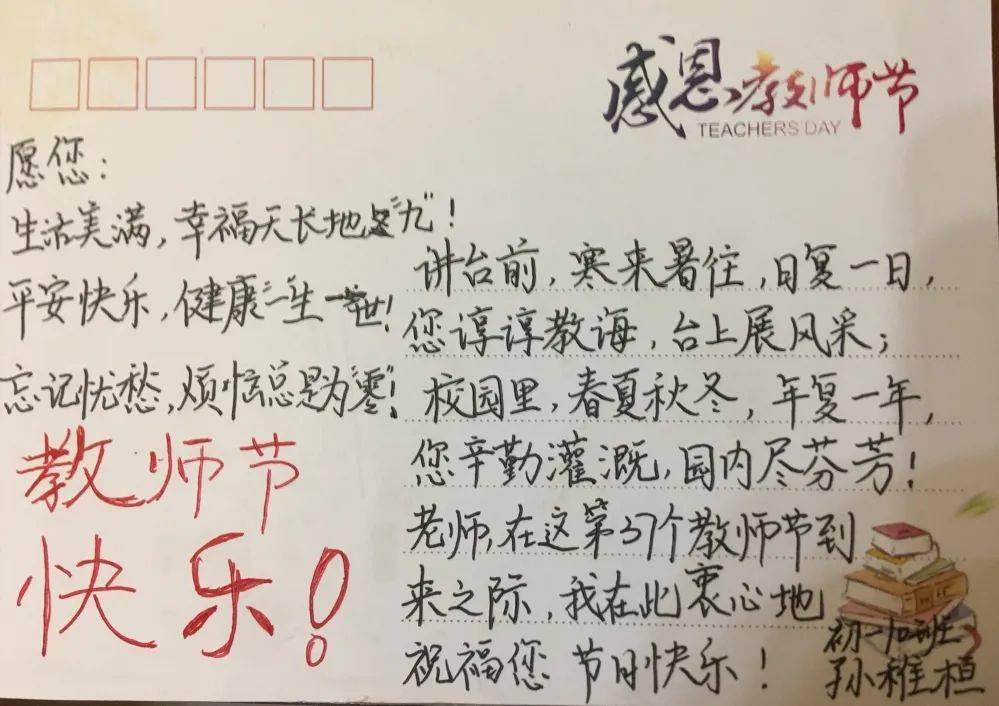 感恩教师节
TEACHERS'DAY
愿您：
生活美满，幸福天长地"九"！
平安快乐，健康"一"生一世！
忘记忧愁，烦恼总是为"零"！
教师节
快乐！
讲台前，寒来暑往，日复一日，
您谆谆教诲，台上展风采；
校园里，春夏秋冬，年复一年，
您辛勤灌溉，园内尽芬芳！
老师，在这第37个教师节到
来之际，我在此衷心地
祝福您 节日快乐！
初一班
孙稚桓